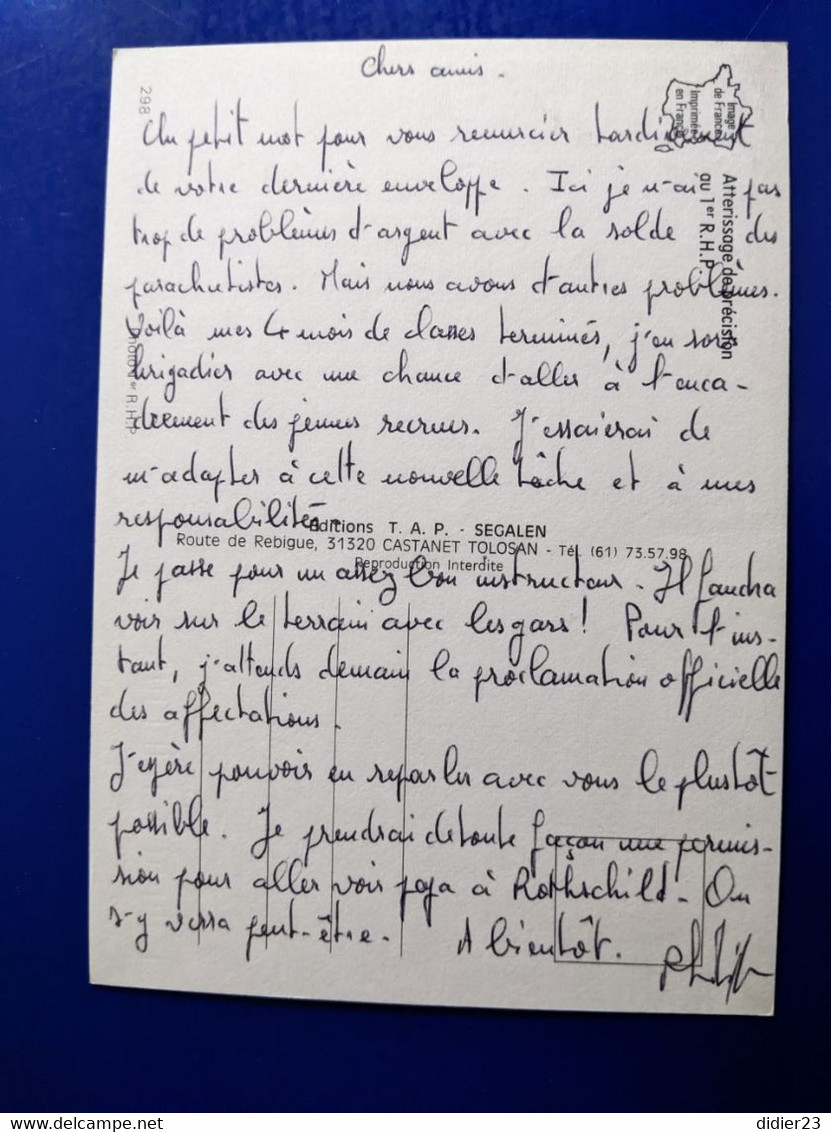 Chers amis.
Un petit mot pour vous remercier tardivement
de votre dernière enveloppe. Ici je n'ai pas
trop de problèmes d'argent avec la solde des
parachutistes. Mais nous avons d'autres problèmes.
Voilà mes 4 mois de classes terminés, j'en sors
brigadier avec une chance d'aller à l'enca-
drement des jeunes recrues. J'essaierai de
m'adapter à cette nouvelle tâche et à mes
responsabilités.
Je passe pour un assez bon instructeur. Il faudra
voir sur le terrain avec les gars ! Pour l'ins-
tant, j'attends demain la proclamation officielle
des affectations.
J'espère pouvoir en reparler avec vous le plus tôt
possible. Je prendrai de toute façon une permis-
sion pour aller voir papa à Rothschild. On
s'y verra peut-être. A bientôt.
298
Image
de France
Imprimée
en France
Atterissage de précision
au 1er R.H.P.
Photo 1er R.H.P.
Editions T. A. P. - SEGALEN
Route de Rebigue, 31320 CASTANET TOLOSAN - Tél. (61) 73.57.98
Reproduction Interdite
didier23